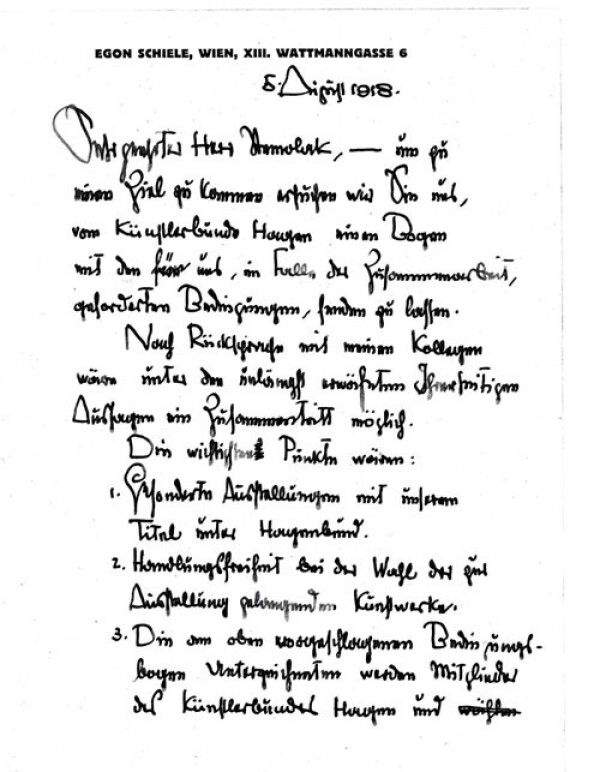 EGON SCHIELE, WIEN, XIII. WATTMANNGASSE 6
5. August 1918.
Sehr geehrter Herr — um zu
einem Ziel zu kommen ersuchen wir Sie uns,
vom Künstlerbunde Hagen einen Bogen
mit den für uns, im Falle der Zusammenarbeit,
geforderten Bedingungen, senden zu lassen.
Nach Rücksprache mit meinen Kollegen
wäre unter den unlängst erwähnten Ihrerseitigen
Aussagen ein Zusammentritt möglich.
Die wichtigsten Punkte wären:
1. Gesonderte Ausstellungen mit unserem
Titel unter Hagenbund.
2. Handlungsfreiheit bei der Wahl der zur
Ausstellung gelangenden Kunstwerke.
3. Die am oben vorgeschlagenen Bedingungs-
bogen Unterzeichneten werden Mitglieder
des Künstlerbundes Hagen und